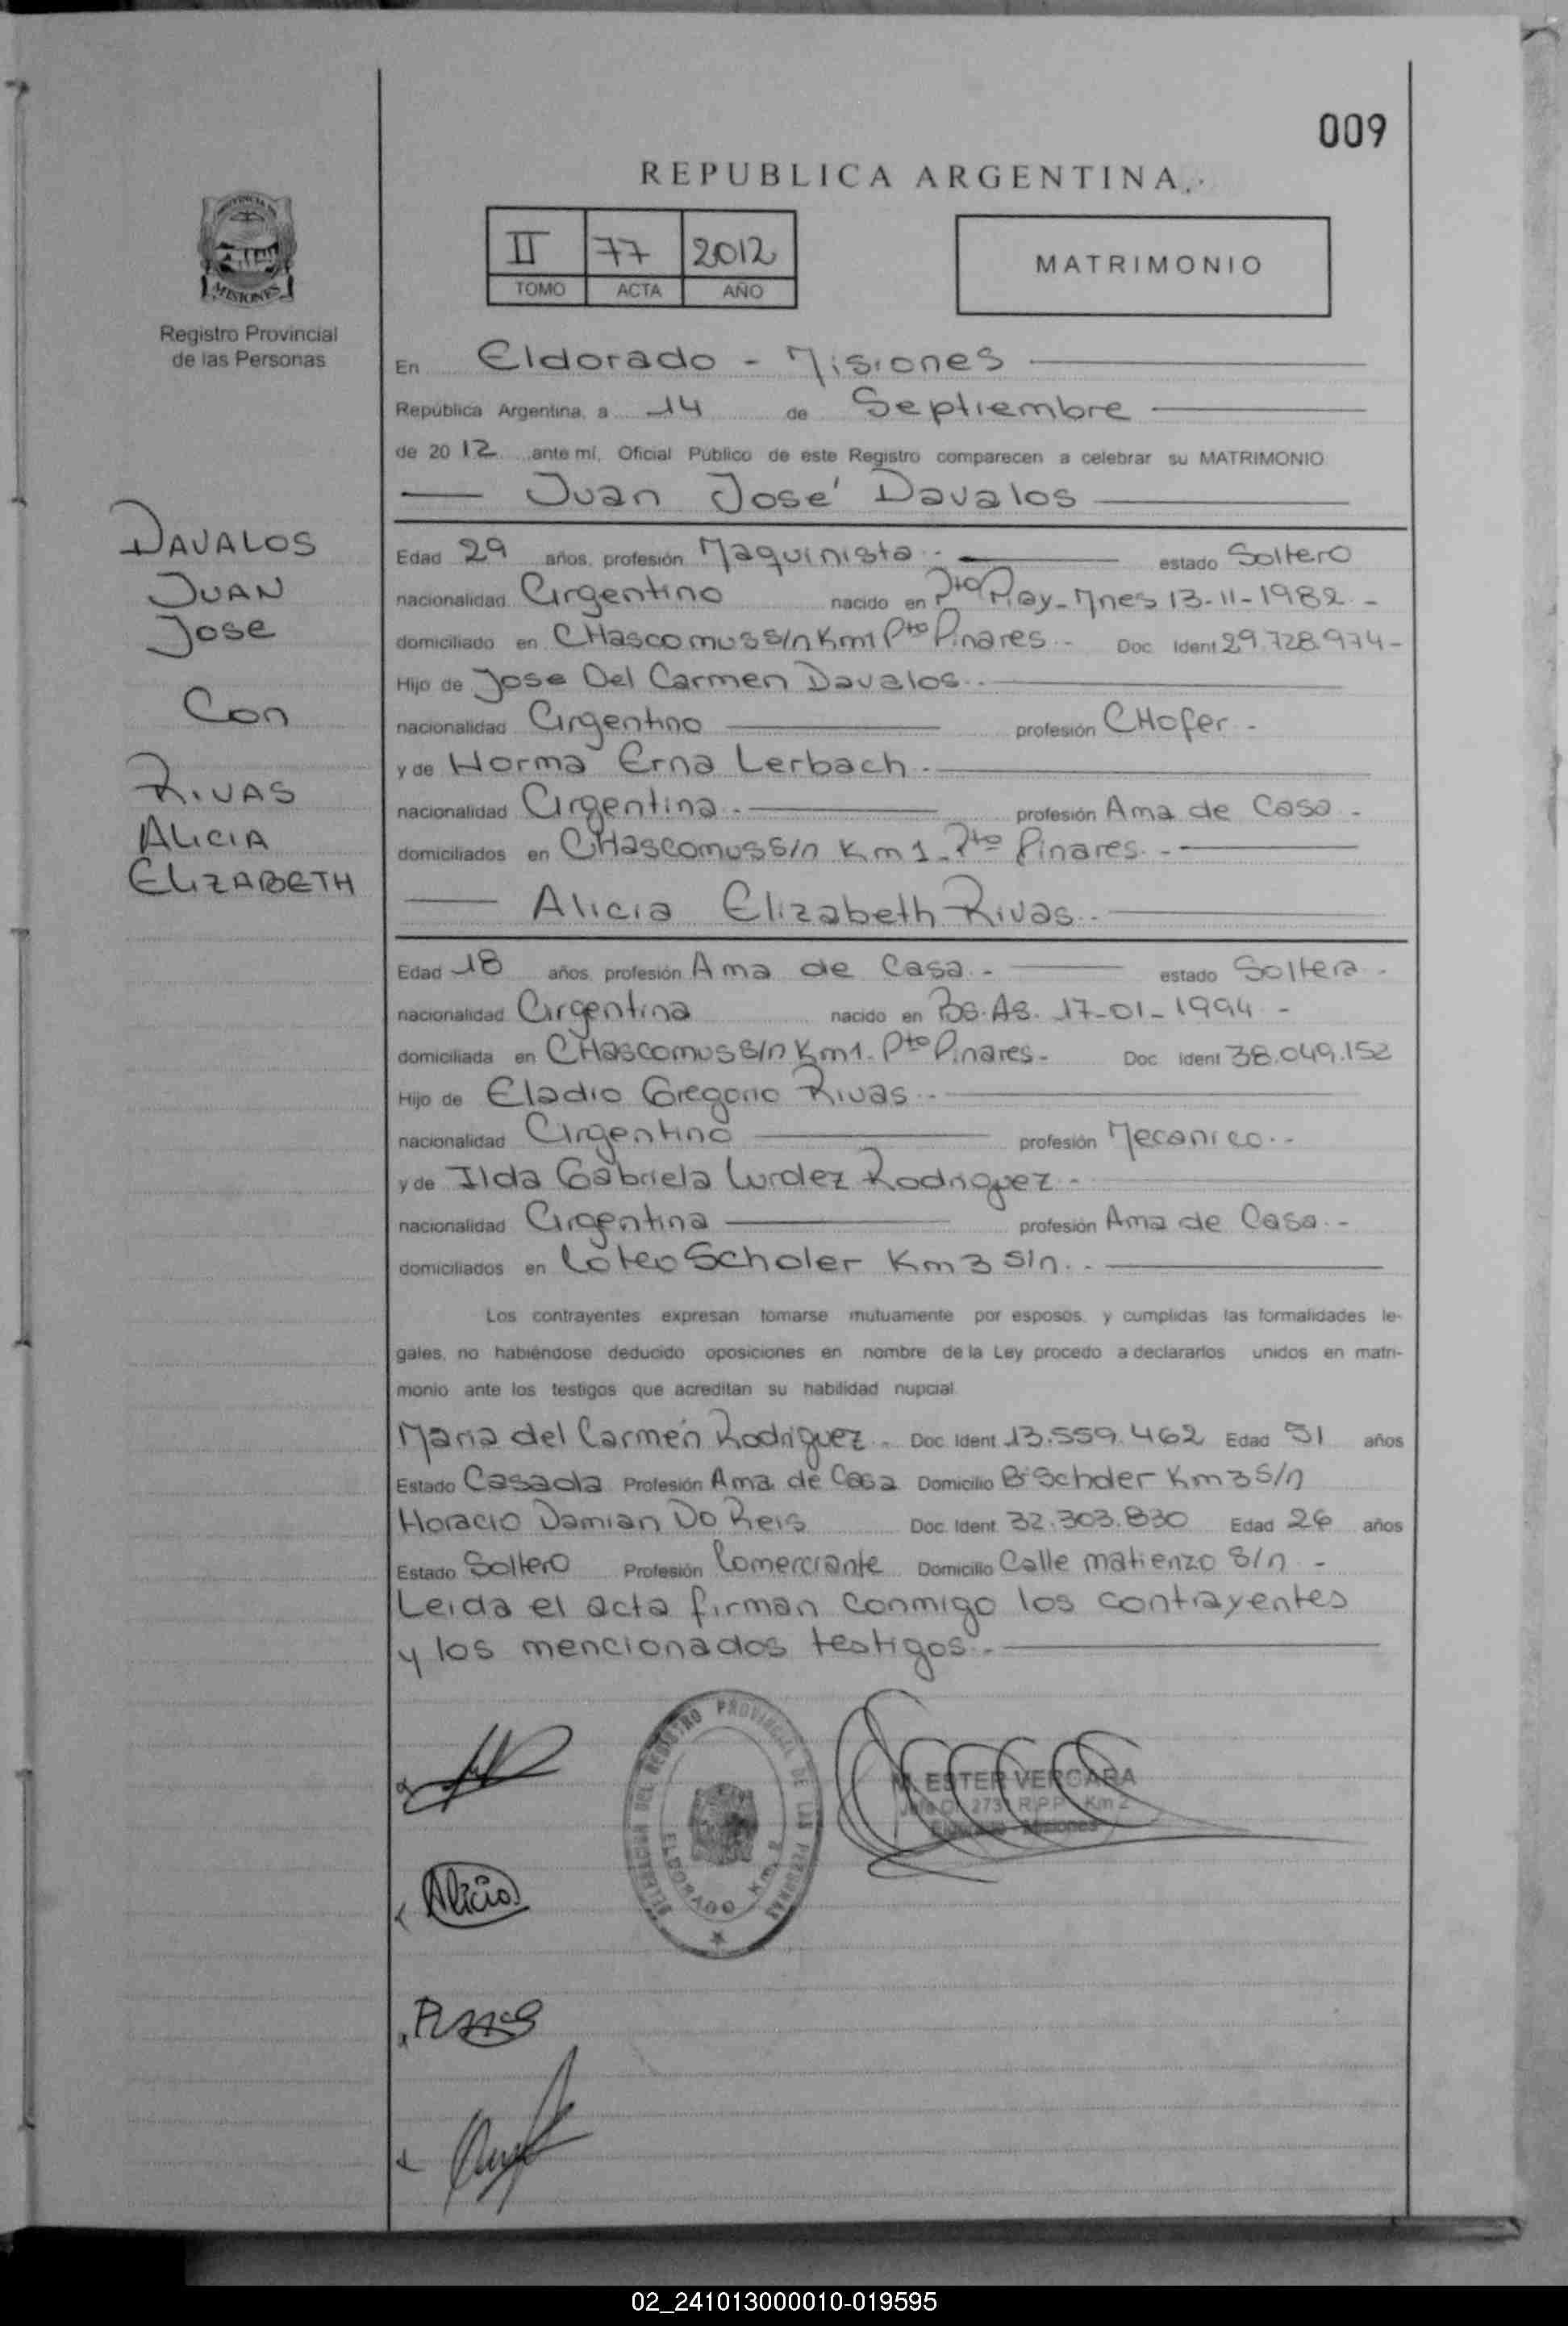 009
REPUBLICA ARGENTINA
II 77 2012
TOMO ACTA AÑO
MATRIMONIO
PROVINCIA DE
MISIONES
Registro Provincial
de las Personas
DAVALOS
JUAN
Jose
Con
RIVAS
ALICIA
ELIZABETH
En Eldorado - Misiones
República Argentina, a 14 de Septiembre
de 2012 ante mí, Oficial Público de este Registro comparecen a celebrar su MATRIMONIO
Juan José Davalos
Edad 29 años, profesión Maquinista.- estado Soltero
nacionalidad Argentino nacido en Pto Play-Mnes 13-11-1982-
domiciliado en CHascomus s/n Km1 Pto Pinares.- Doc. Ident 29.728.974-
Hijo de Jose Del Carmen Davalos.-
nacionalidad Argentino profesión CHofer-
y de Norma Erna Lerbach-
nacionalidad Argentina.- profesión Ama de Casa-
domiciliados en CHascomus s/n Km 1-Pto Pinares.-
Alicia Elizabeth Rivas.-
Edad 18 años, profesión Ama de Casa.- estado Soltera-
nacionalidad Argentina nacido en Bs.As. 17-01-1994-
domiciliada en CHascomus s/n Km1-Pto Pinares- Doc. Ident 38.049.152
Hijo de Eladio Gregorio Rivas.-
nacionalidad Argentino profesión Mecanico.-
y de Ilda Gabriela Lurdez Rodriguez-
nacionalidad Argentina profesión Ama de Casa.-
domiciliados en Loteo Scholer Km 3 s/n.-
Los contrayentes expresan tomarse mutuamente por esposos, y cumplidas las formalidades le-
gales, no habiéndose deducido oposiciones en nombre de la Ley procedo a declararlos unidos en matri-
monio ante los testigos que acreditan su habilidad nupcial
Maria del Carmen Rodriguez- Doc. Ident 13.559.462 Edad 51 años
Estado Casada Profesión Ama de Casa Domicilio B° Scholer Km 3 S/n
Horacio Damian Do Reis Doc. Ident. 32.303.830 Edad 26 años
Estado Soltero Profesión Comerciante Domicilio Calle matienzo S/n-
Leida el acta firman conmigo los contrayentes
y los mencionados testigos.-
DELEGACION DEL REGISTRO PROVINCIAL DE LAS PERSONAS
ELDORADO Km. 2
M. ESTER VERGARA
Jefa Of. 2731 R.P.P. Km 2
Eldorado - Misiones
Alicia
02_241013000010-019595